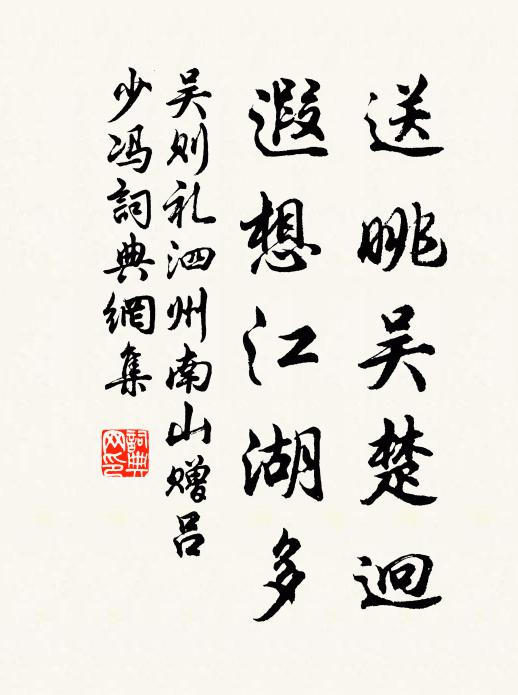 送眺吴楚迥
遐想江湖多
吴则礼泗州南山赠吕
少冯詞典網集
詞典网印